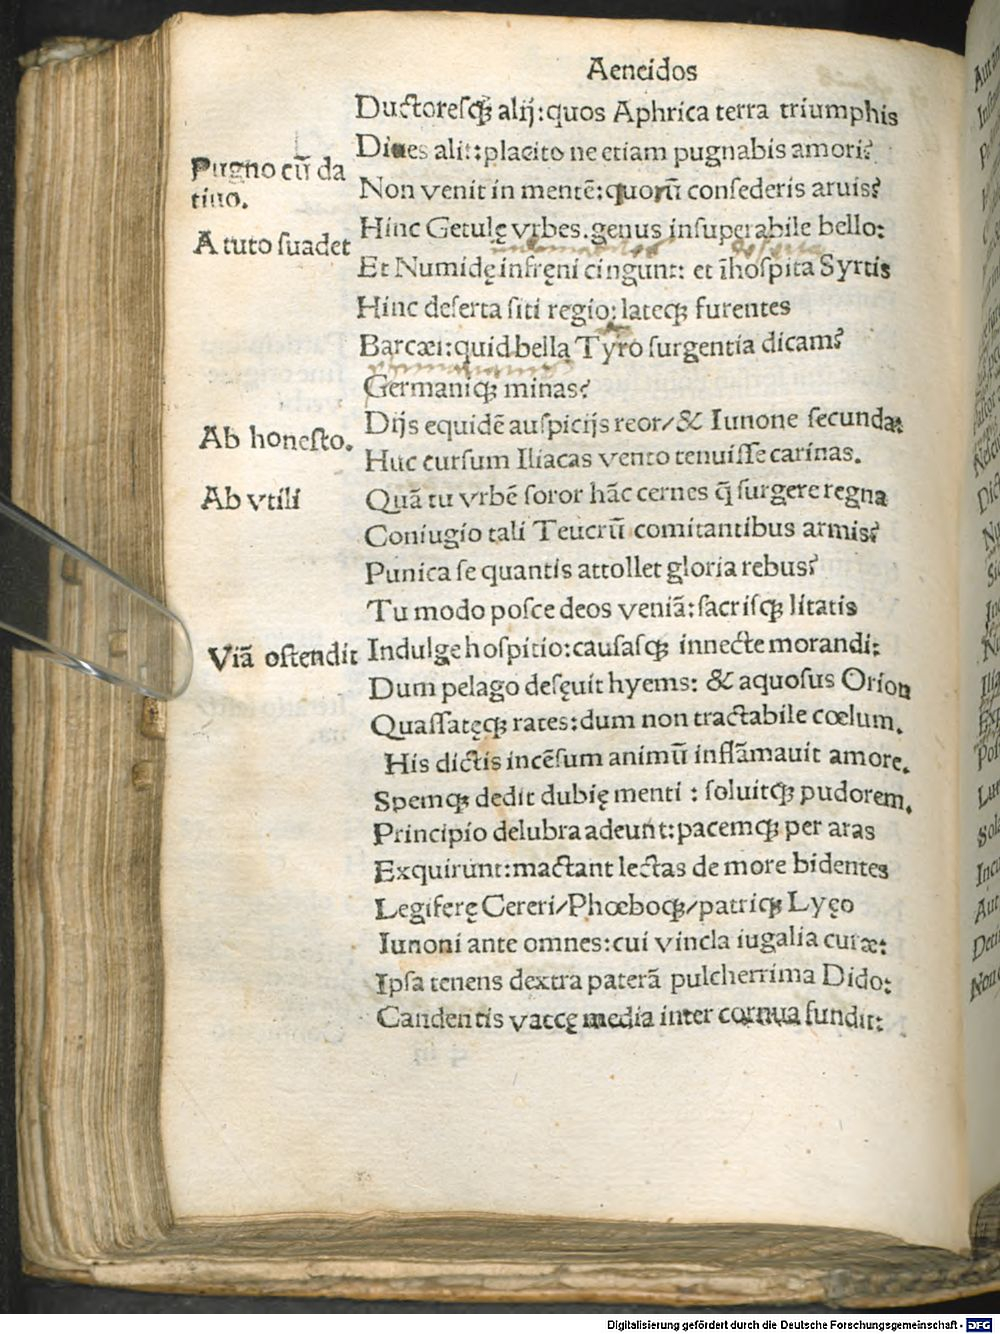 Aeneidos
Ductoreſqꝫ alij:quos Aphrica terra triumphis
Diues alit:placito ne etiam pugnabis amori?
Pugno cū da
tiuo.
Non venit in mentē:quorū conſederis aruis?
Hinc Getulę vrbes.genus inſuperabile bello:
A tuto ſuadet
Et Numidę infręni cingunt: et īhoſpita Syrtis
Hinc deſerta ſiti regio:lateqꝫ furentes
Barcæi:quid bella Tyro ſurgentia dicam?
Germaniqꝫ minas?
Dijs equidē auſpicijs reor/& Iunone ſecunda:
Ab honeſto.
Huc curſum Iliacas vento tenuiſſe carinas.
Ab vtili
Quā tu vrbē ſoror hāc cernes q̄ ſurgere regna
Coniugio tali Teucrū comitantibus armis?
Punica ſe quantis attollet gloria rebus?
Tu modo poſce deos veniā:ſacriſqꝫ litatis
Viā oſtendit
Indulge hoſpitio:cauſaſqꝫ innecte morandi:
Dum pelago deſęuit hyems: & aquoſus Orion
Quaſſatęqꝫ rates:dum non tractabile cœlum.
His dictis incēſum animū inflāmauit amore.
Spemqꝫ dedit dubię menti : ſoluitqꝫ pudorem.
Principio delubra adeunt:pacemqꝫ per aras
Exquirunt:mactant lectas de more bidentes
Legiferę Cereri/Phœboqꝫ/patriqꝫ Lyęo
Iunoni ante omnes:cui vincla iugalia curæ:
Ipſa tenens dextra paterā pulcherrima Dido:
Candentis vaccę media inter cornua fundit:
Digitalisierung gefördert durch die Deutsche Forschungsgemeinschaft - DFG